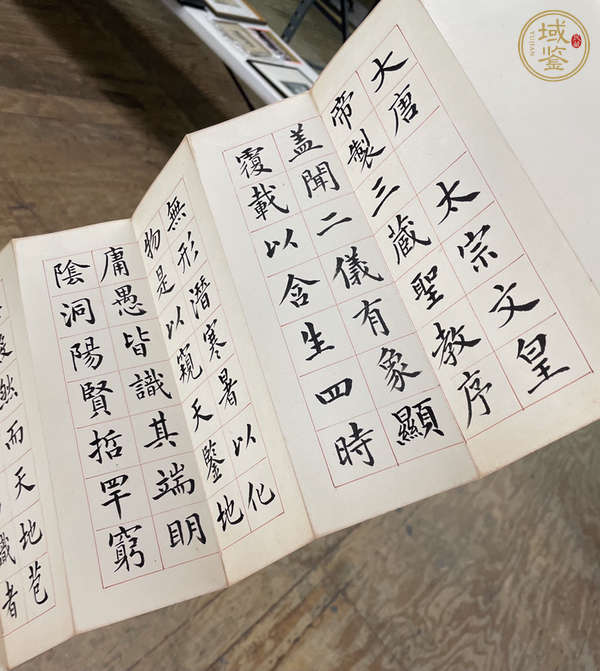 大唐 太宗文皇
帝製三藏聖教序
盖聞二儀有象顯
覆載以含生四時
無形潛寒暑以化
物是以窺天鑒地
庸愚皆識其端明
陰洞陽賢哲罕窮
然而天地苞
識者
域鉴
YUJIAN